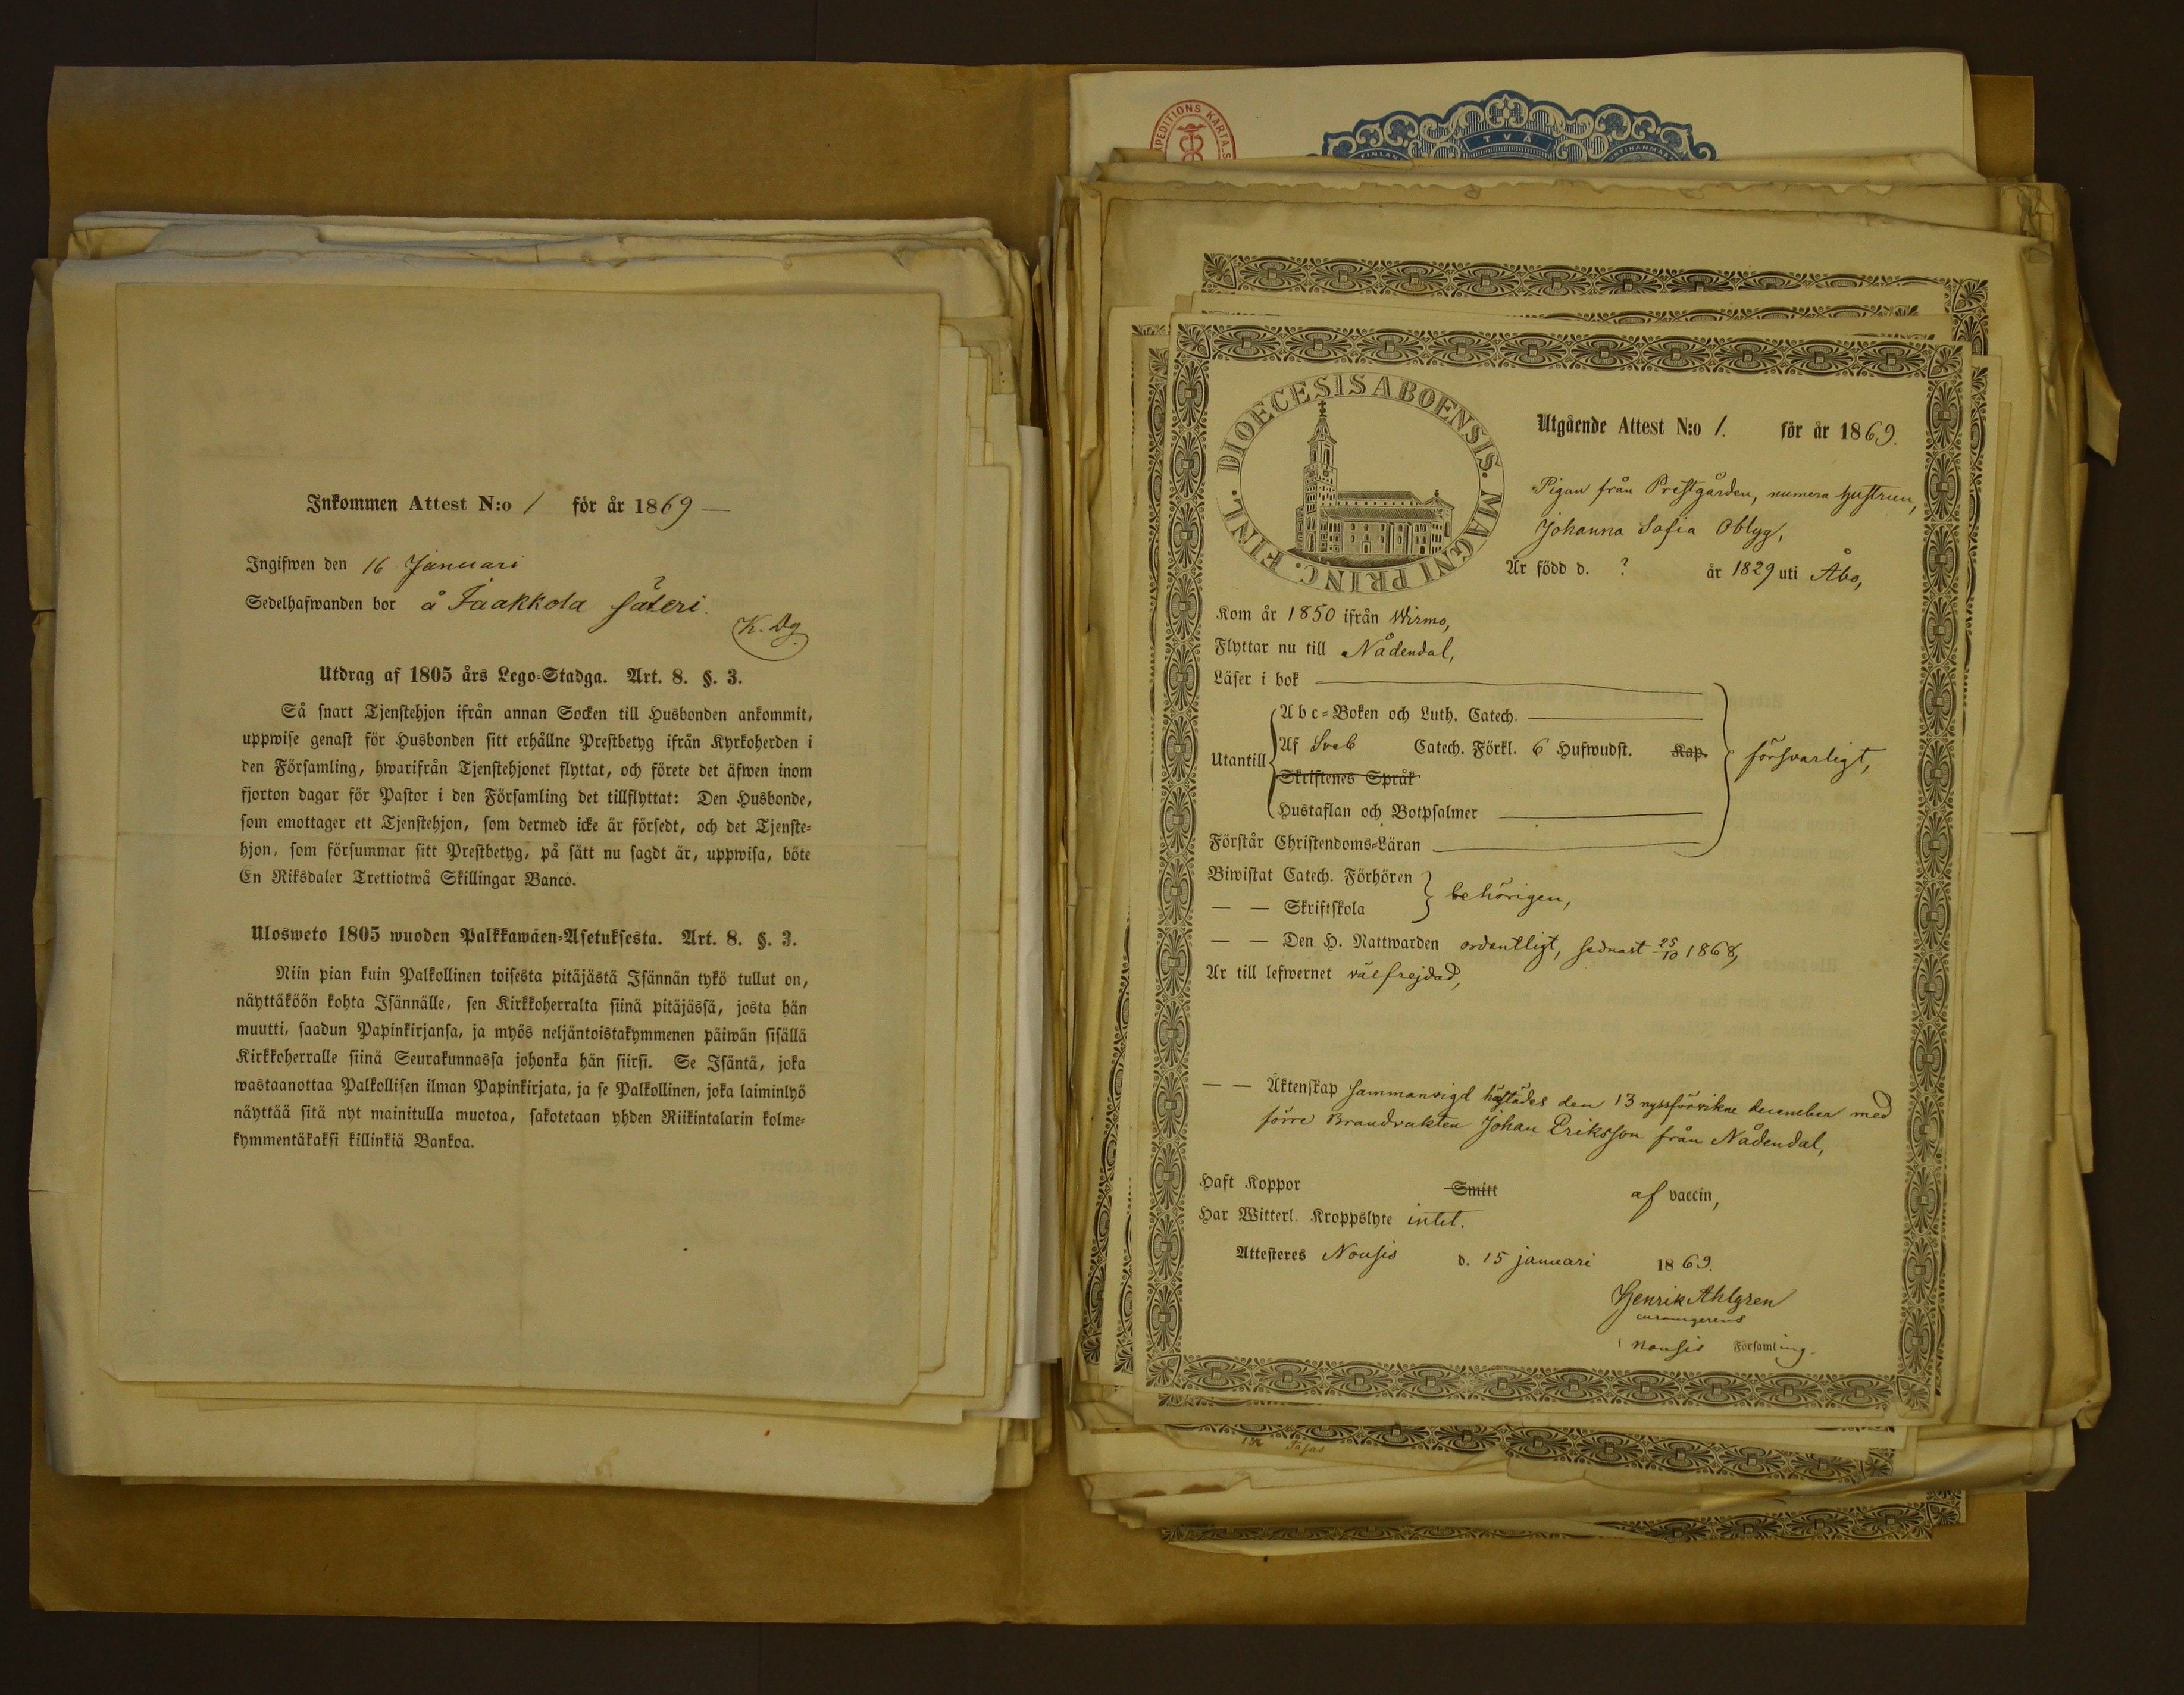 Inkommen Attest N:o 1 för år 1869
Ingifwen den 16 Januari
Sedelhafwanden bor å Jaakkola säteri.
K. Dg.
Utdrag af 1805 års Lego-Stadga. Art. 8. §. 3.
Så snart Tjenstehjon ifrån annan Socken till Husbonden ankommit,
uppwise genast för Husbonden sitt erhållne Prestbetyg ifrån Kyrkoherden i
den Församling, hwarifrån Tjenstehjonet flyttat, och förete det äfwen inom
fjorton dagar för Pastor i den Församling det tillflyttat: Den Husbonde,
som emottager ett Tjenstehjon, som dermed icke är försedt, och det Tjenste-
hjon, som försummar sitt Prestbetyg, på sätt nu sagdt är, uppwisa, böte
En Riksdaler Trettiotwå Skillingar Banco.
Ulosweto 1805 wuoden Palkkawäen-Asetuksesta. Art. 8. §. 3.
Niin pian kuin Palkollinen toisesta pitäjästä Isännän tykö tullut on,
näyttäköön kohta Isännälle, sen Kirkkoherralta siinä pitäjässä, josta hän
muutti, saadun Papinkirjansa, ja myös neljäntoistakymmenen päiwän sisällä
Kirkkoherralle siinä Seurakunnassa johonka hän siirsi. Se Isäntä, joka
wastaanottaa Palkollisen ilman Papinkirjata, ja se Palkollinen, joka laiminlyö
näyttää sitä nyt mainitulla muotoa, sakotetaan yhden Riikintalarin kolme-
kymmentäkaksi killinkiä Bankoa.
TVÅ
DIOECESIS ABOENSIS. MAGNI PRINC. FINL.
Utgående Attest N:o 1. för år 1869.
Pigan från Prestgården, numera hustrun,
Johanna Sofia Oblyg,
Är född d. ? år 1829 uti Åbo,
Kom år 1850 ifrån Wirmo,
Flyttar nu till Nådendal,
Läser i bok
Utantill
Abc-Boken och Luth. Catech.
Af Sveb Catech. Förkl. 6 Hufwudst. Kap.
Skriftenes Språk
Hustaflan och Botpsalmer
försvarligt,
Förstår Christendoms-Läran
Biwistat Catech. Förhören
— — Skriftskola
behörigen,
— — Den H. Nattwarden ordentligt, sednast 25/10 1868,
Är till lefwernet välfrejdad,
— — Äktenskap sammanvigd häfstades den 13 nyssförvikne december med
förre Brandvakten Johan Eriksson från Nådendal,
Haft Koppor Smitt af vaccin,
Har Witterl. Kroppslyte intet.
Attesteres Nousis d. 15 januari 1869.
Henrik Ahlgren
curamgerens
i Nousis Församling.